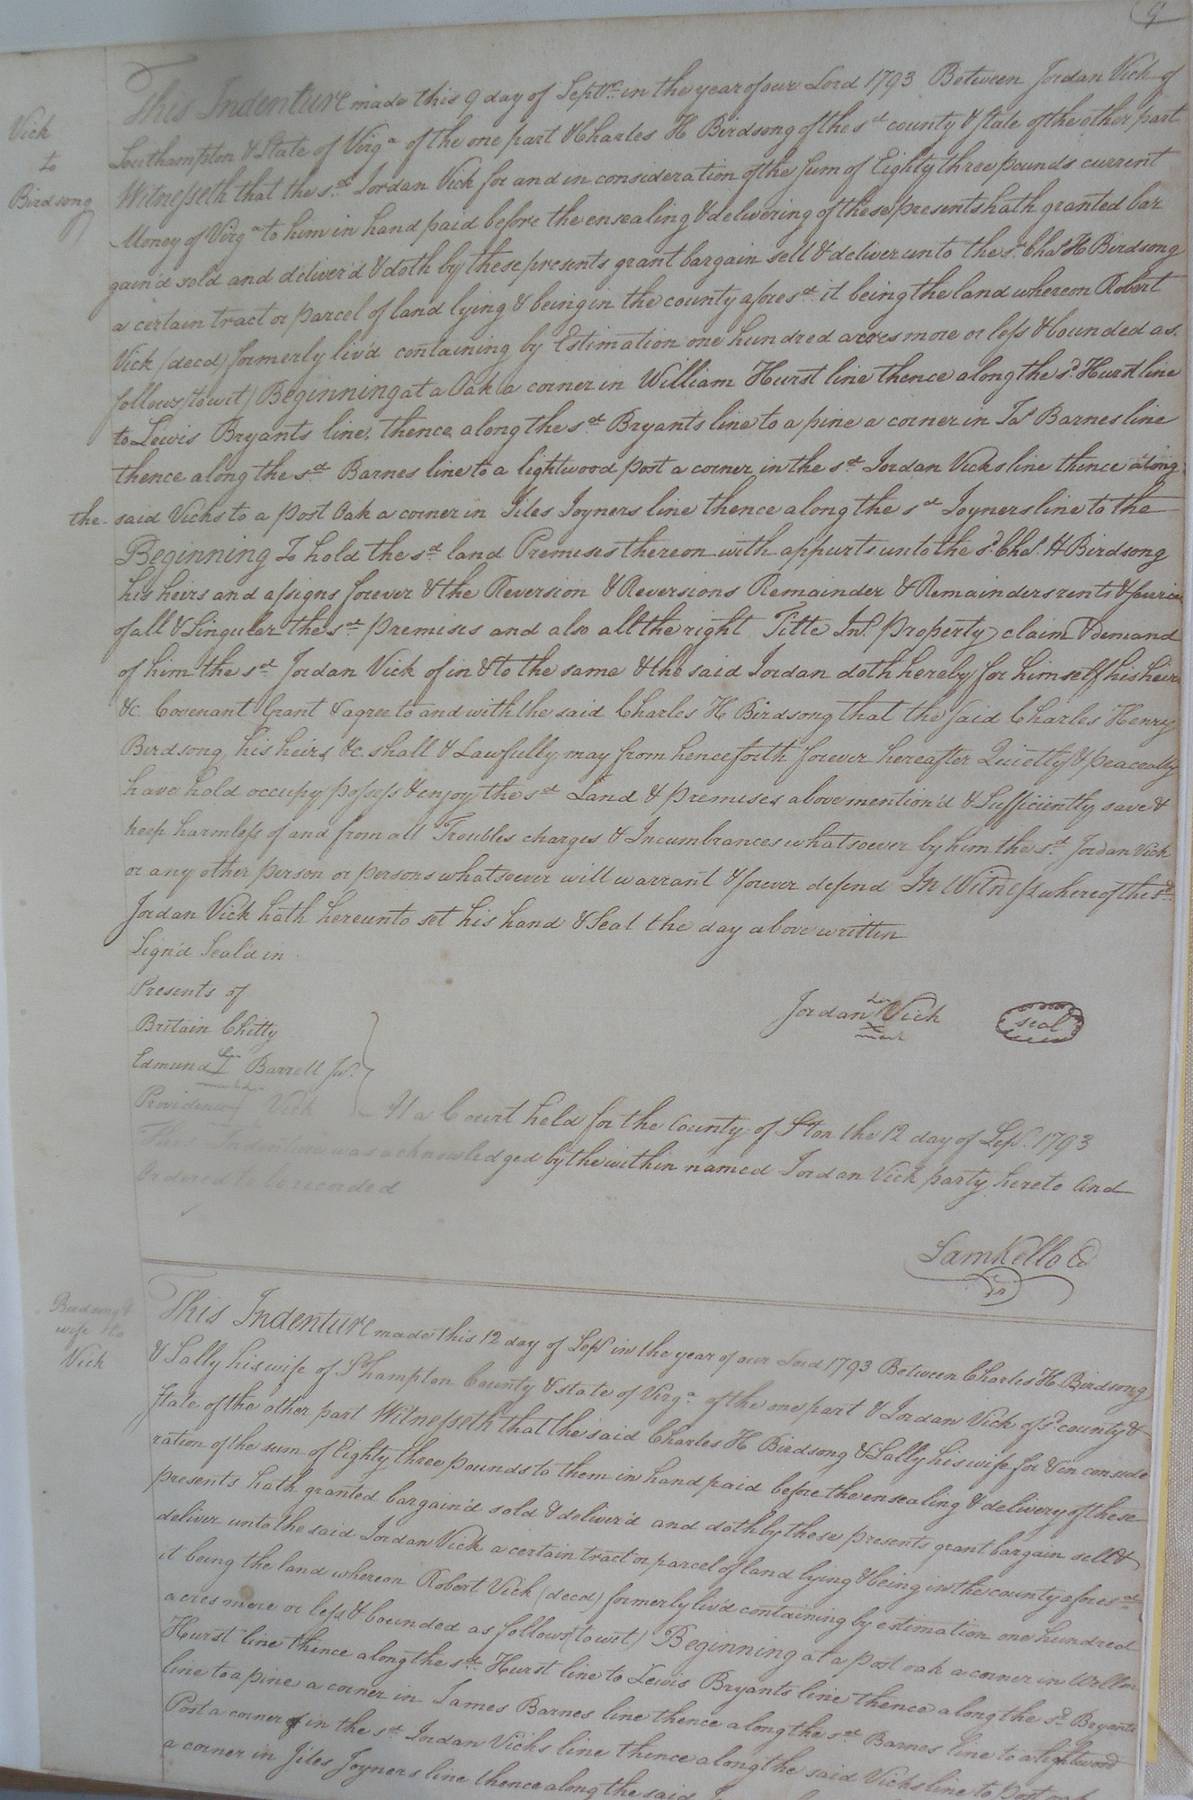 9
Vick
to
Birdsong
This Indenture made this 9 day of Septr. in the year of our Lord 1793 Between Jordan Vick of
Southampton & State of Virga of the one part & Charles H Birdsong of the sd county & state of the other part
Witnesseth that the sd. Jordan Vick for and in consideration of the sum of Eighty three pounds current
Money of Virga to him in hand paid before the ensealing & delivering of these presents hath granted bar
gain'd sold and deliver'd & doth by these presents grant bargain sell & deliver unto the sd. Chas H Birdsong
a certain tract or parcel of land lying & being in the county aforesd. it being the land whereon Robert
Vick (decd) formerly liv'd containing by Estimation one hundred acres more or less & bounded as
follows (to wit) Beginning at a Oak a corner in William Hurst line thence along the sd. Hurst line
to Lewis Bryants line, thence along the sd. Bryants line to a pine a corner in Jas Barnes line
thence along the sd. Barnes line to a lightwood post a corner in the sd. Jordan Vicks line thence along
the said Vicks to a post Oak a corner in Jiles Joyners line thence along the sd Joyners line to the
Beginning To hold the sd. land Premises thereon with appurts unto the sd. Chas. H Birdsong
his heirs and assigns forever & the Reversion & Reversions Remainder & Remainders rents &
of all & Singuler the sd. premises and also all the right Title Int. property claim & demand
of him the sd. Jordan Vick of in & to the same & the said Jordan doth hereby for himself his heirs
&c. Covenant Grant & agree to and with the said Charles H Birdsong that the said Charles Henry
Birdsong, his heirs &c. shall & Lawfully may from henceforth forever hereafter Quietly & peaceably
have hold occupy possess & enjoy the sd. Land & premises above mention'd & Sufficiently save &
keep harmless of and from all Troubles charges & Incumbrances whatsoever by him the sd. Jordan Vick
or any other person or persons whatsoever will warrant & forever defend In Witness whereof the sd.
Jordan Vick hath hereunto set his hand & Seal the day above written
Sign'd Seal'd in
Presents of
Britain Chitty
Edmund Barrell Jur.
Providence Vick
Jordan his X mark Vick
seal
At a Court held for the County of Ston the 12 day of Sept. 1793
This Indenture was acknowledged by the within named Jordan Vick party hereto and
Ordered to be recorded
Sam Kello Cl
Birdsong &
wife to
Vick
This Indenture made this 12 day of Sept in the year of our Lord 1793 Between Charles H. Birdsong
& Sally his wife of Shampton County & state of Virga. of the one part & Jordan Vick of sd. county &
state of the other part Witnesseth that the said Charles H Birdsong & Sally his wife for & in conside
ration of the sum of Eighty three pounds to them in hand paid before the ensealing & delivery of these
presents hath granted bargain'd sold & deliver'd and doth by these presents grant bargain sell &
deliver unto the said Jordan Vick a certain tract or parcel of land lying & being in the county aforesd.
it being the land whereon Robert Vick (decd) formerly liv'd containing by estimation one hundred
acres more or less & bounded as follows (to wit) Beginning at a post oak a corner in William
Hurst line thence along the sd. Hurst line to Lewis Bryants line thence along the sd. Bryants
line to a pine a corner in James Barnes line thence along the sd. Barnes line to a lightwood
Post a corner in the sd. Jordan Vicks line thence along the said Vicks line to post oak
a corner in Jiles Joyners line thence along the said